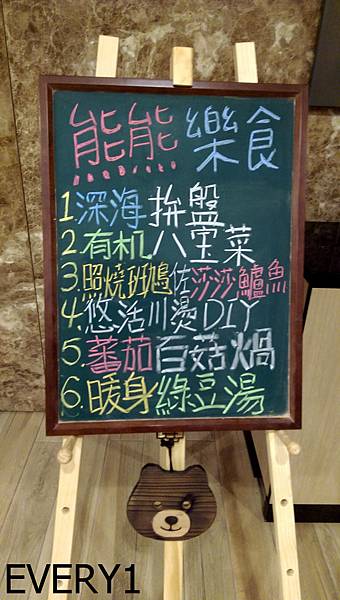 熊熊樂食
1.深海拚盤
2.有机八宝菜
3.照燒班鴟佐莎莎鱸魚
4.悠活川燙DIY
5.蕃茄百菇火鍋
6.暖身綠豆湯
EVERY1